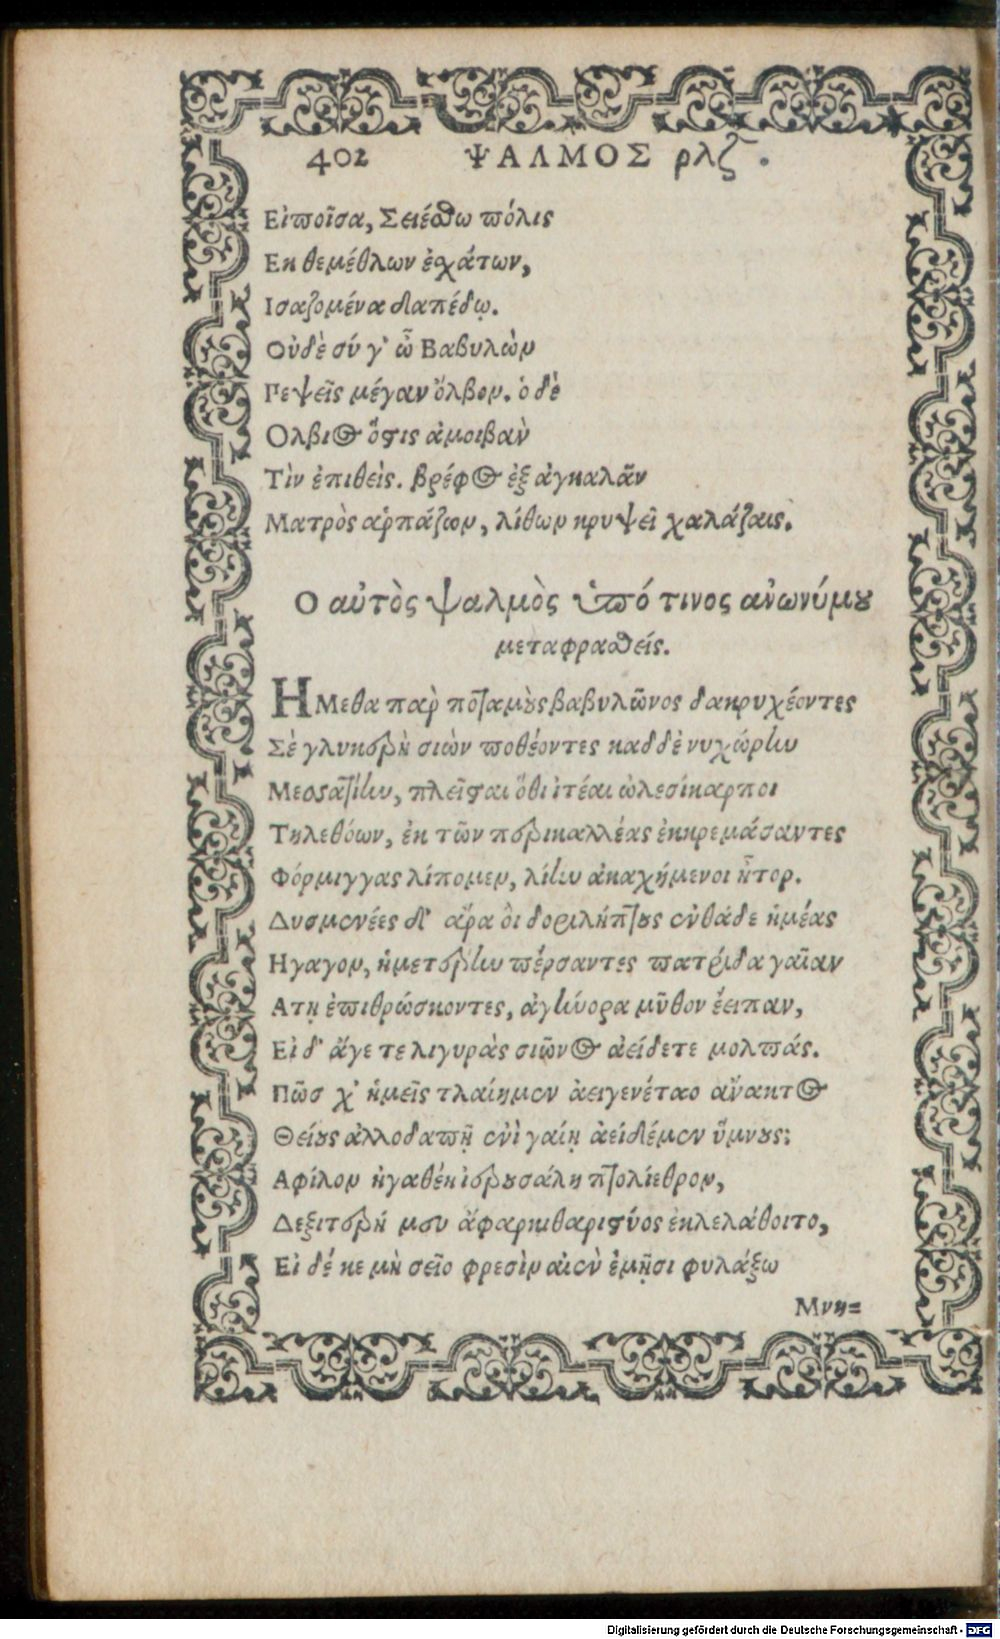 402 ΨΑΛΜΟΣ ρλζ.
Εἰποῖσα, Σειέσθω πόλις
Εκ θεμέθλων ἐσχάτων,
Ισαζομένα διαπέδῳ.
Οὐδὲ σύ γ' ὦ Βαβυλὼν
Πεψεῖς μέγαν ὄλβον. ὁ δὲ
Ολβιος ὅστις ἀμοιβαν
Τὶν ἐπιθεὶς. βρέφος ἐξ ἀγκαλᾶν
Ματρὸς ἁρπάζων, λίθων κρυψεῖ χαλάζαις.
Ο αὐτὸς ψαλμὸς ὑπό τινος ἀνωνύμου
μεταφρασθείς.
ΗΜεθα παρ ποταμοὺς βαβυλῶνος δακρυχέοντες
Σὲ γλυκερὴ σιὼν ποθέοντες καδδὲ νυχώρην
Μεσσατίην, πλεῖσται ὅθι ἰτέαι ὠλεσίκαρποι
Τηλεθόων, ἐκ τῶν περικαλλέας ἐκκρεμάσαντες
Φόρμιγγας λίπομεν, λίην ἀκαχήμενοι ἦτορ.
Δυσμενέες δι' ἄρα οἱ δοριλήπτους ἐνθάδε ἡμέας
Ηγαγον, ἡμετέρην πέρσαντες πατρίδα γαῖαν
Ατῃ ἐπιθρώσκοντες, ἀγήνορα μῦθον ἔειπαν,
Εἰ δ' ἄγε τε λιγυρὰς σιῶνος ἀείδετε μολπάς.
Πῶσ χ' ἡμεῖς τλαίημεν ἀειγενέταο ἄνακτος
Θείους ἀλλοδαπῇ ἐνὶ γαίῃ ἀείδιέμεν ὕμνους;
Αφίλον ἠγαθέη ἱερουσάλη πτολίεθρον,
Δεξιτερή μευ ἄφαρ κιθαριστύος ἐκλελάθοιτο,
Εἰ δέ κε μὴ σεῖο φρεσὶν αἰὲν ἐμῇσι φυλάξω
Μνη=
Digitalisierung gefördert durch die Deutsche Forschungsgemeinschaft - DFG